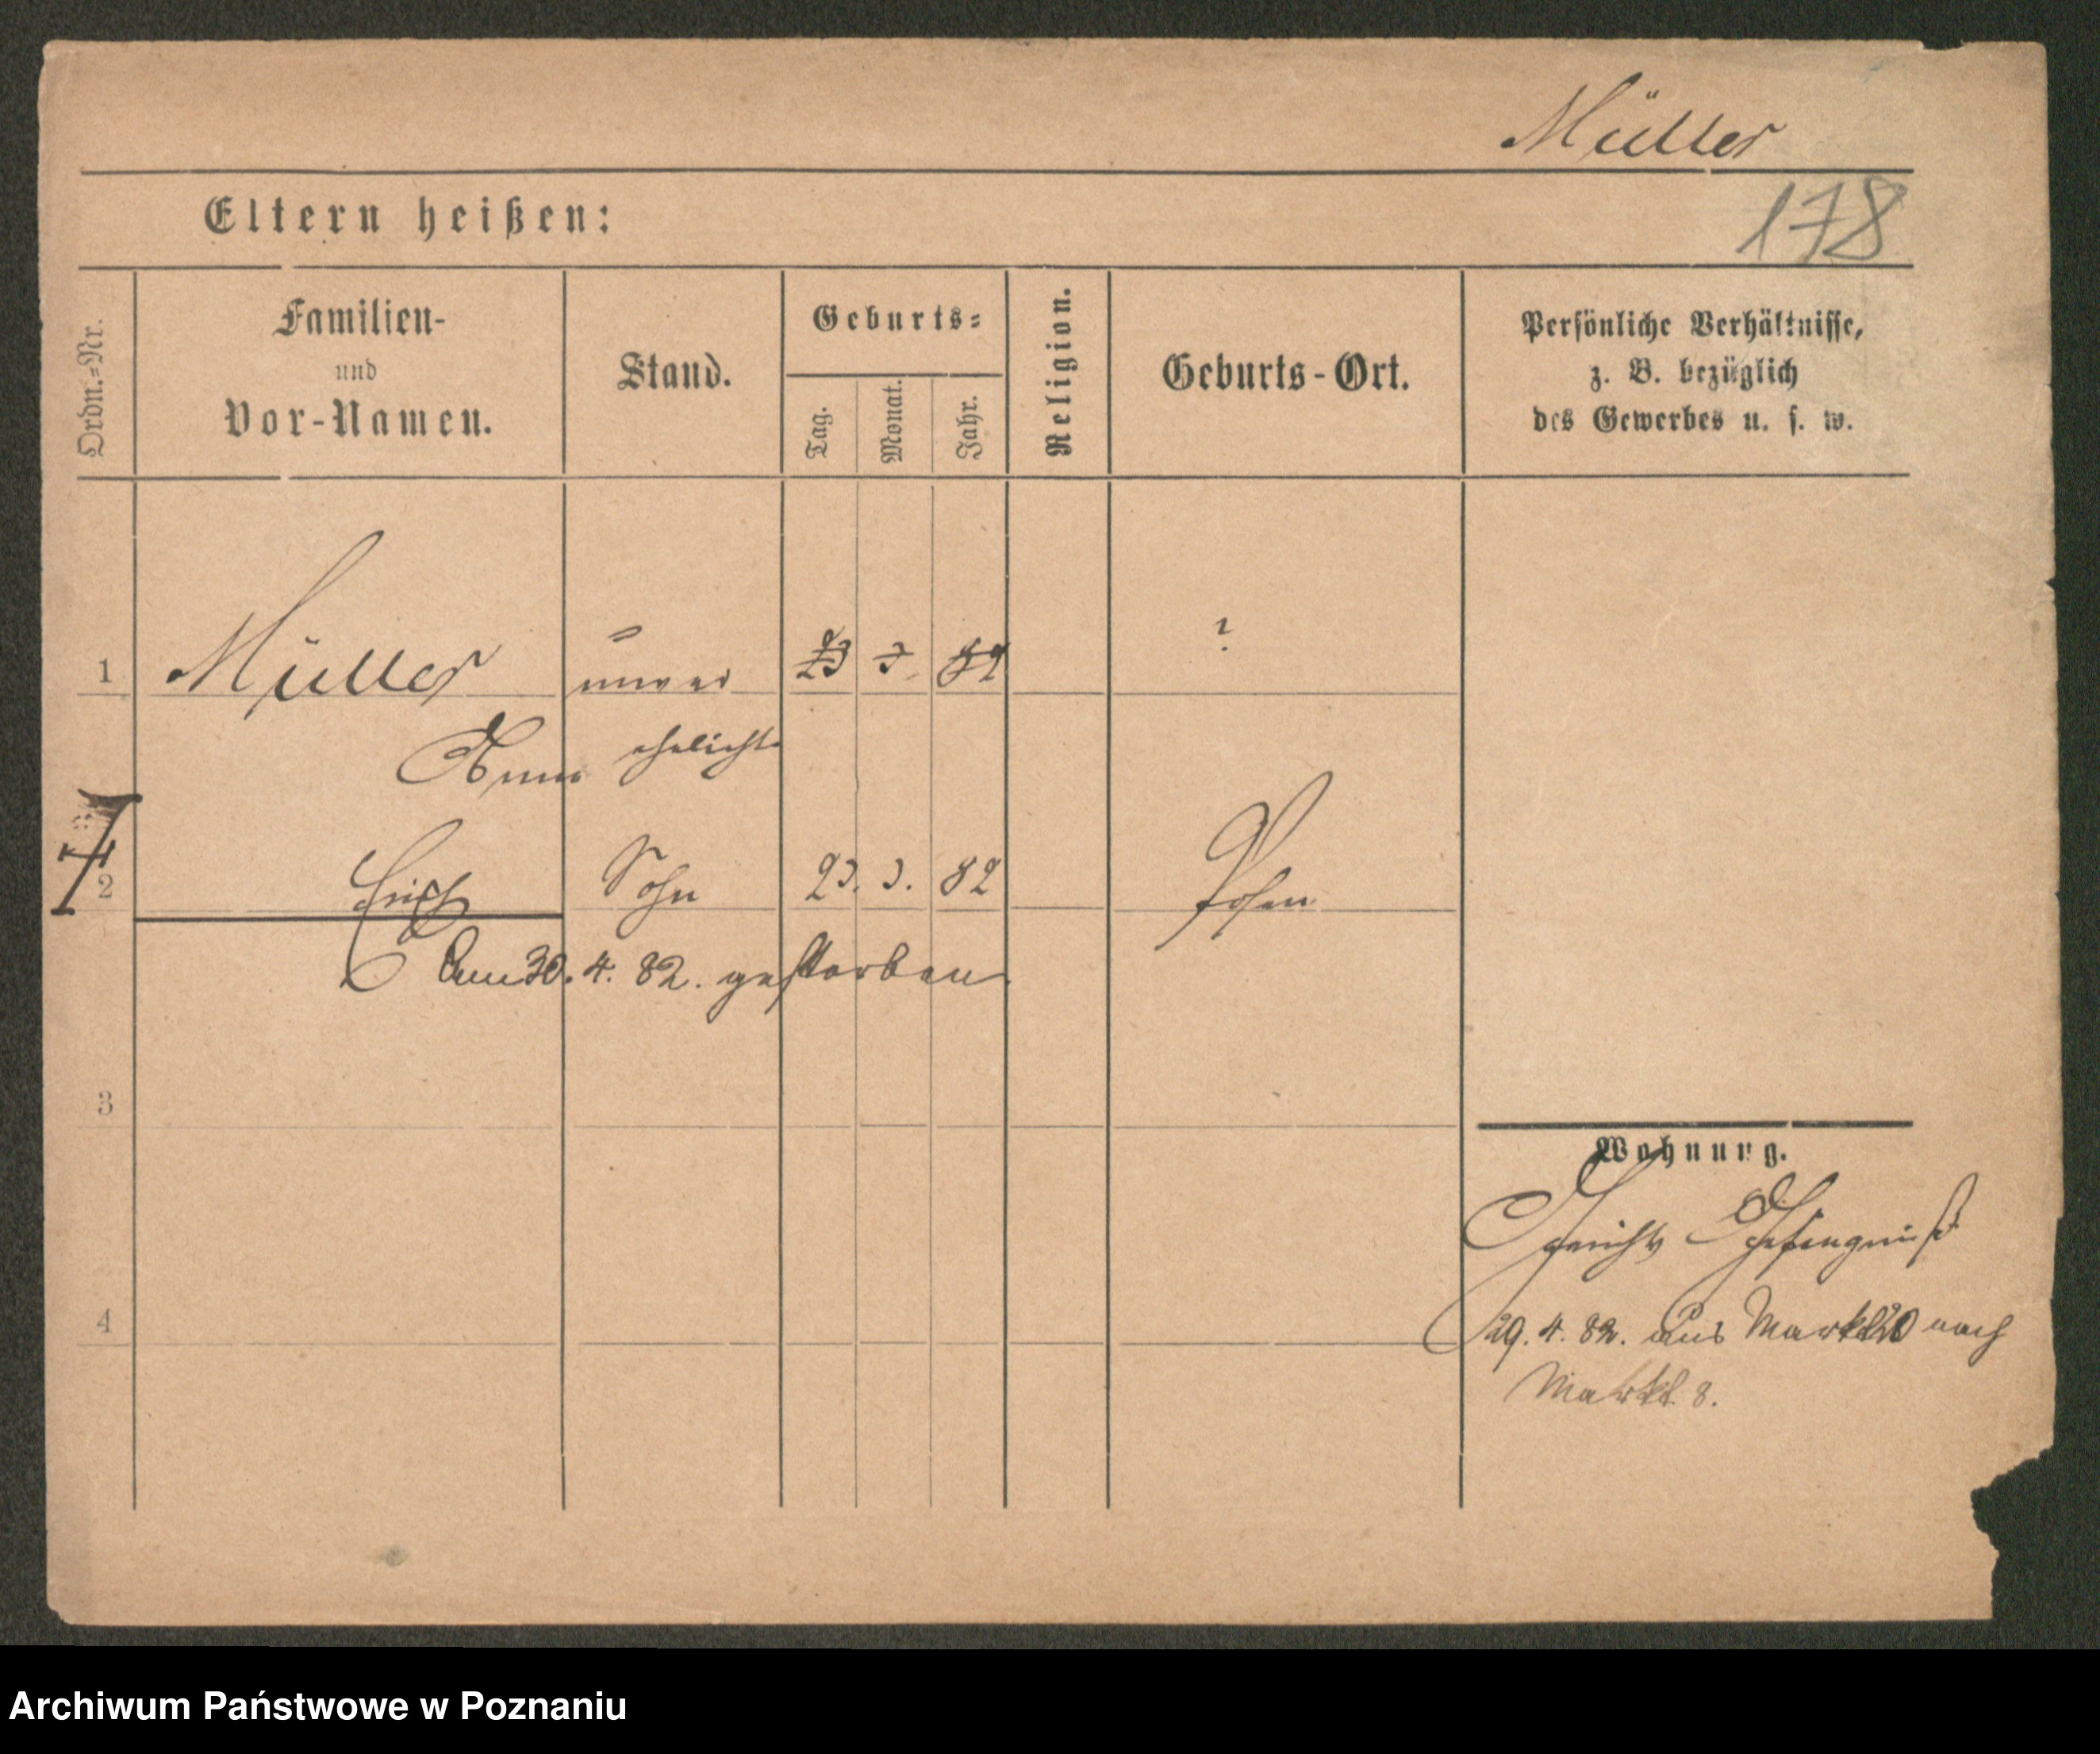 Müller
178
Eltern heißen:
Ordn.-Nr.
Familien-
und
Vor-Namen.
Stand.
Geburts-
Tag.
Monat.
Jahr.
Religion.
Geburts-Ort.
Persönliche Verhältnisse,
z. B. bezüglich
des Gewerbes u. s. w.
1 Müller unver 23 3. 82 ?
Anna ehelicht
2 Erich Sohn 23. 3. 82 Posen
Am 30. 4. 82. gestorben
3
4
Wohnung.
Gerichts Gefängniß
29. 4. 82. aus Markt nach
Markt 8.
Archiwum Państwowe w Poznaniu